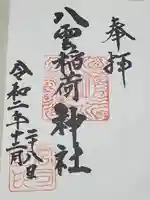 奉拝
八雲稲荷神社
令和二年十二月二十八日